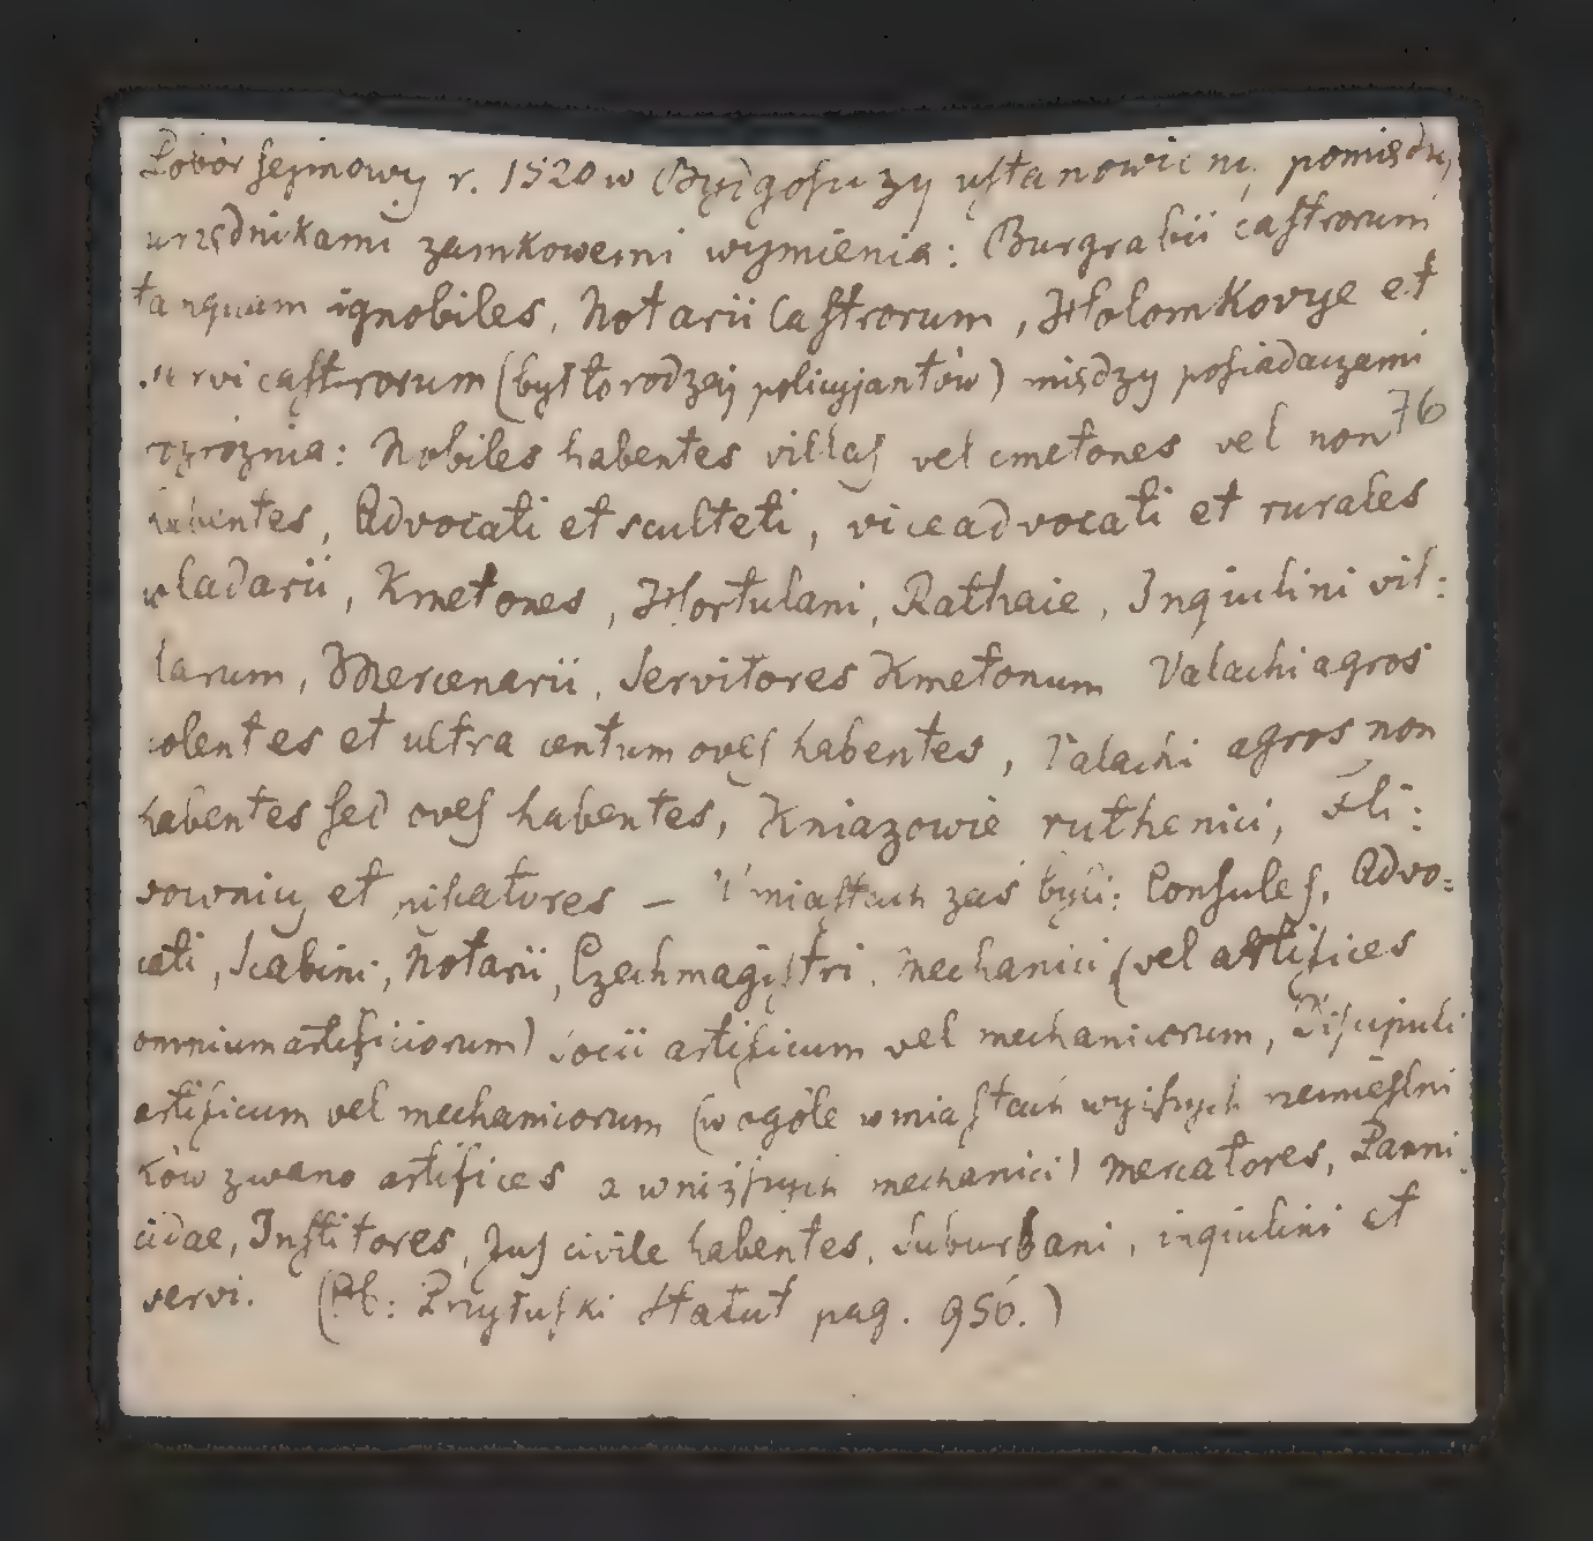 Pobór sejmowy r. 1520 w Bydgoszczy ustanowiony pomiędzy
urzędnikami zamkowemi wymienia: Burgrabii castrorum
tanquam ignobiles, Notarii Castrorum, Holomkovye et
servi castrorum (był to rodzaj policyjantów) między posiadaczami
rozróżnia: Nobiles habentes villas vel cmetones vel non 76
habentes, Advocati et sculteti, viceadvocati et rurales
wladarii, Kmetones, Hortulani, Rathaie, Inquilini vil:
larum, Mercenarii, Servitores Kmetonum Valachi agros
colentes et ultra centum oves habentes, Valachi agros non
habentes sed oves habentes, Kniazowie ruthenici,
et piscatores – W miastach zaś byli: Consules, Advo:
cati, Scabini, Notarii, Czechmagistri, Mechanici (vel artifices
omnium artificiorum) Socii artificum vel mechanicorum, Discipuli
artificum vel mechanicorum (w ogóle w miastach wyższych rzemieślni
ków zwano artifices a w niższych mechanici) Mercatores, Panni
cidae, Institores, Jus civile habentes, Suburbani, inquilini et
servi. (Ob: Przyłuski Statut pag. 956.)